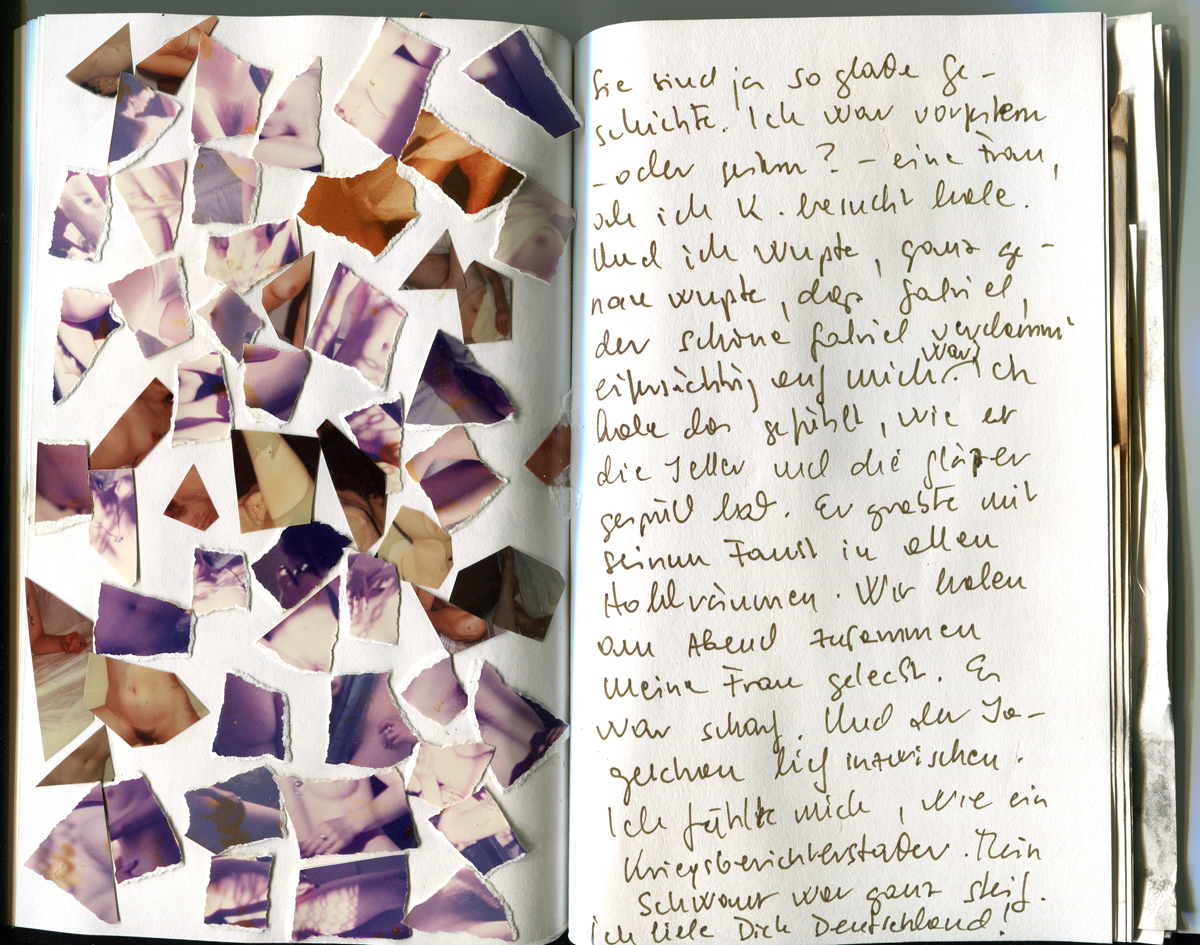 Sie sind ja so glatte Ge-
schichte. Ich war vorgestern
- oder gestern? - eine Frau,
als ich K. besucht habe.
Und ich wußte, ganz ge-
nau wußte, daß Gabriel,
der schöne Gabriel verdammt
eifersüchtig auf mich war. Ich
habe das gefühlt, wie er
die Teller und die Gläser
gespült hat. Er grabte mit
seinen Faust in allen
Hohlräumen. Wir haben
am Abend zusammen
meine Frau geleckt. Er
war scharf. Und der Ta-
geschau lief inzwischen.
Ich fühlte mich, wie ein
Kriegsberichterstatter. Mein
Schwanz war ganz steif.
ich liebe Dich Deutschland!